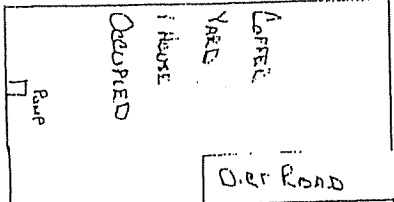 COFFEE
YARD
1 HOUSE
OCCUPIED
PUMP
DIRT ROAD